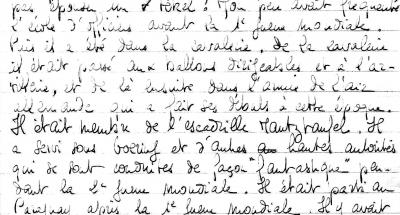 pas épouser un Mon père avait fréquenté
l'école d'officiers avant la 1e guerre mondiale.
Puis il a été dans la cavalerie. De la cavalerie
il était passé aux ballons dirigeables et à l'ar-
tillerie, et de là ensuite dans l'armée de l'air
allemande qui a fait ses débuts à cette époque.
Il était membre de l'escadrille Il
a servi sous Goering et d'autres hautes autorités
qui se sont conduites de façon "fantastique" pen-
dant la 2e guerre mondiale. Il était parti au
Paraguay après la 1e guerre mondiale. Il y avait